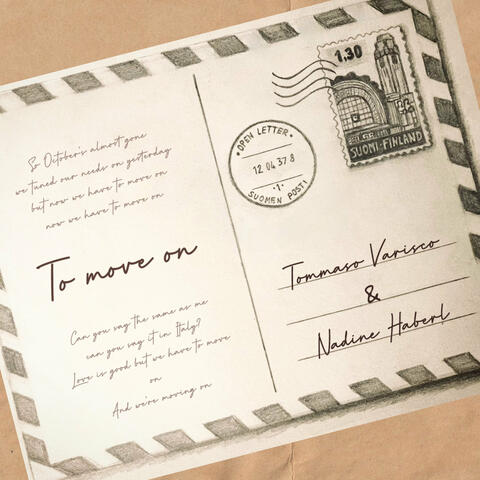 So October's almost gone
we tuned our needs on yesterday
but now we have to move on
now we have to move on
To move on
Can you say the same as me
can you say it in Italy?
Love is good but we have to move
on
And we're moving on
1.30
SUOMI-FINLAND
OPEN LETTER
12 04 37 8
· 1 ·
SUOMEN POSTI
Tommaso Varisco
&
Nadine Haberl